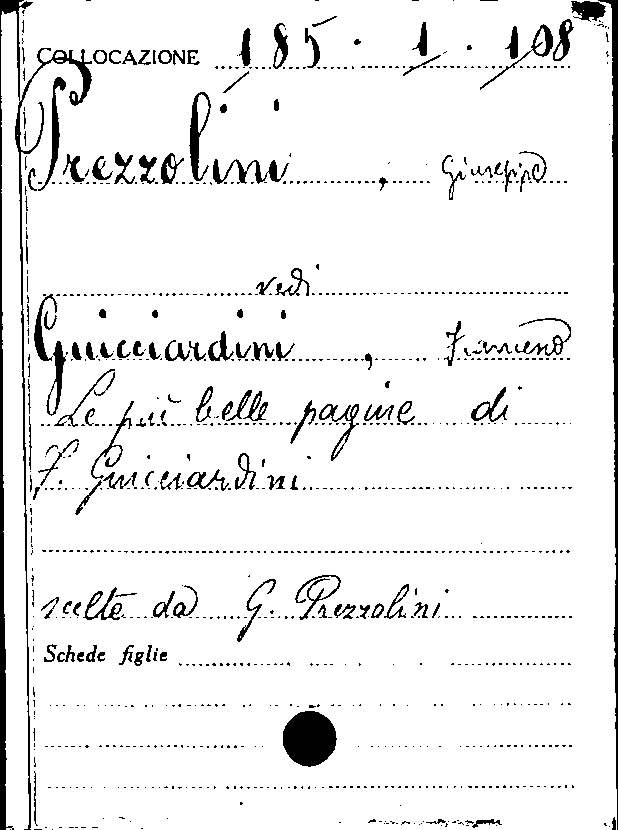 COLLOCAZIONE 185.1.108
Prezzolini, Giuseppe
vedi
Guicciardini, Francesco
Le più belle pagine di
F. Guicciardini
scelte da G. Prezzolini
Schede figlie